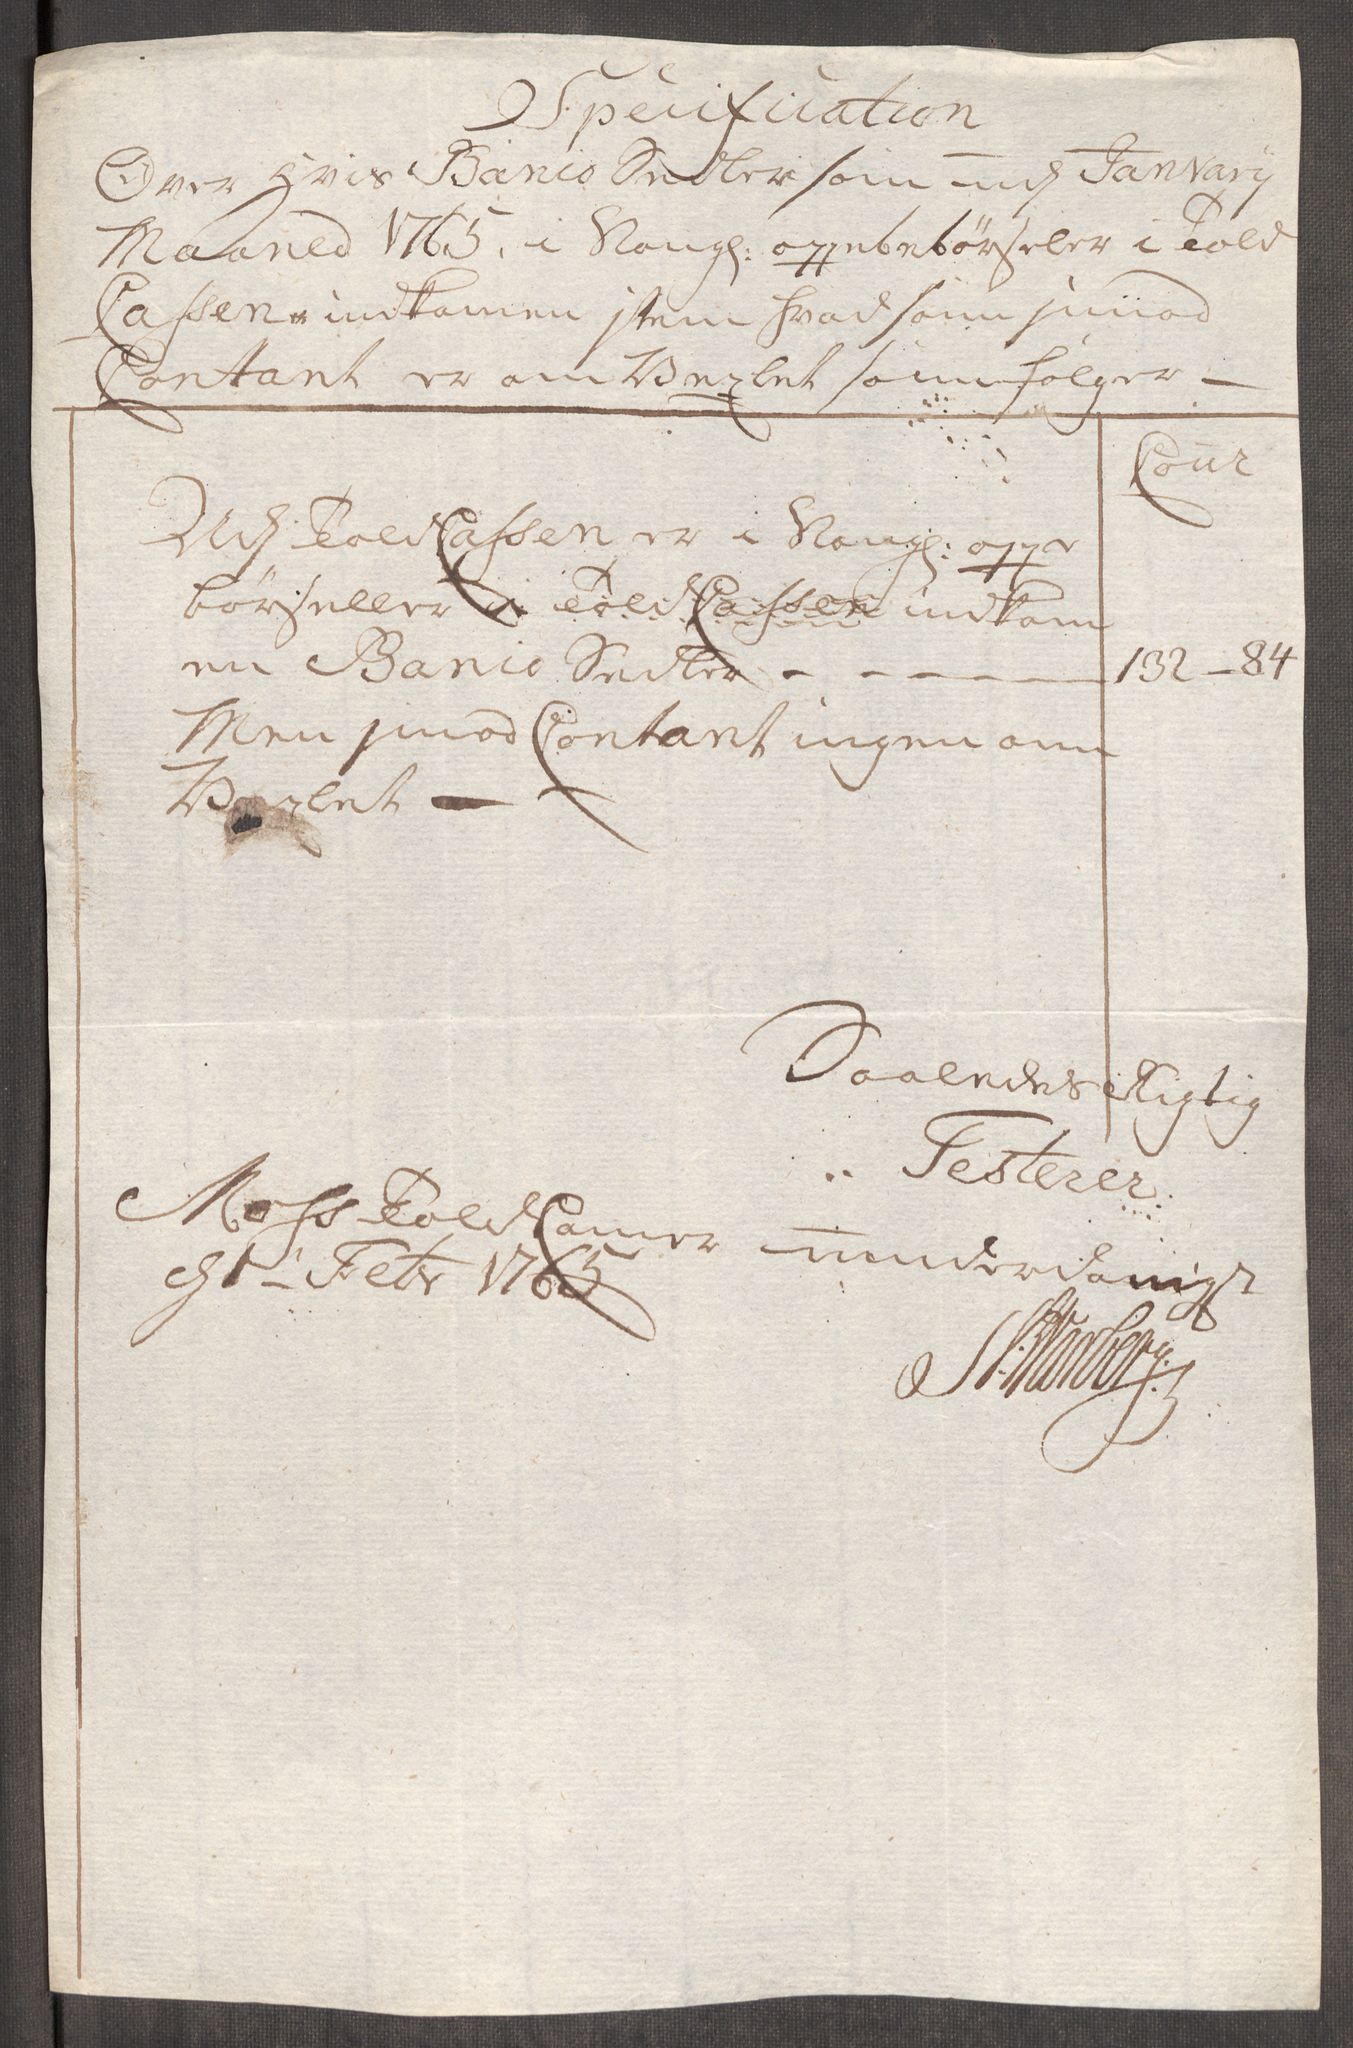 Specification
Over hvis Banco Sedler som udj Januarij
Maaned 1765. i Kongl: oppebebörseler i Told
Cassen indkomen jtem hvad som jmod
Contant er om Vexlet som følger -
Cour
Udj Told Cassen er i Kongl: oppe
börseller i Told Cassen indkom
en Banco Sedler - - - - - 132 - 84
Men jmod Contant ingen om
Vexlet -
Saaledes Rigtig
Testerer
Moss Told Camer underdanigst
d 1 Febr 1765
Warberg